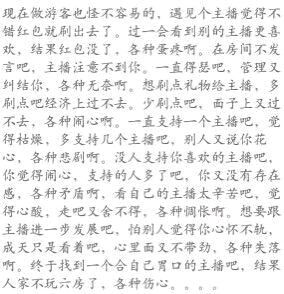 现在做游客也怪不容易的，遇见个主播觉得不
错红包就刷出去了。过一会看到别的主播更喜
欢，结果红包没了，各种蛋疼啊。在房间不发
言吧，主播注意不到你。一直得瑟吧，管理又
纠结你，各种无奈啊。想刷点礼物给主播，多
刷点吧经济上过不去。少刷点吧，面子上又过
不去，各种闹心啊。一直支持一个主播吧，觉
得枯燥，多支持几个主播吧，别人又说你花
心，各种悲剧啊。没人支持你喜欢的主播吧，
你觉得闹心，支持的人多了吧，你又没有存在
感，各种矛盾啊，看自己的主播太辛苦吧，觉
得心酸，走吧又舍不得，各种惆怅啊。想要跟
主播进一步发展吧，怕别人觉得你心怀不轨，
成天只是看着吧，心里面又不带劲、各种失落
啊。终于找到一个合自己胃口的主播吧，结果
人家不玩六房了，各种伤心。。。。